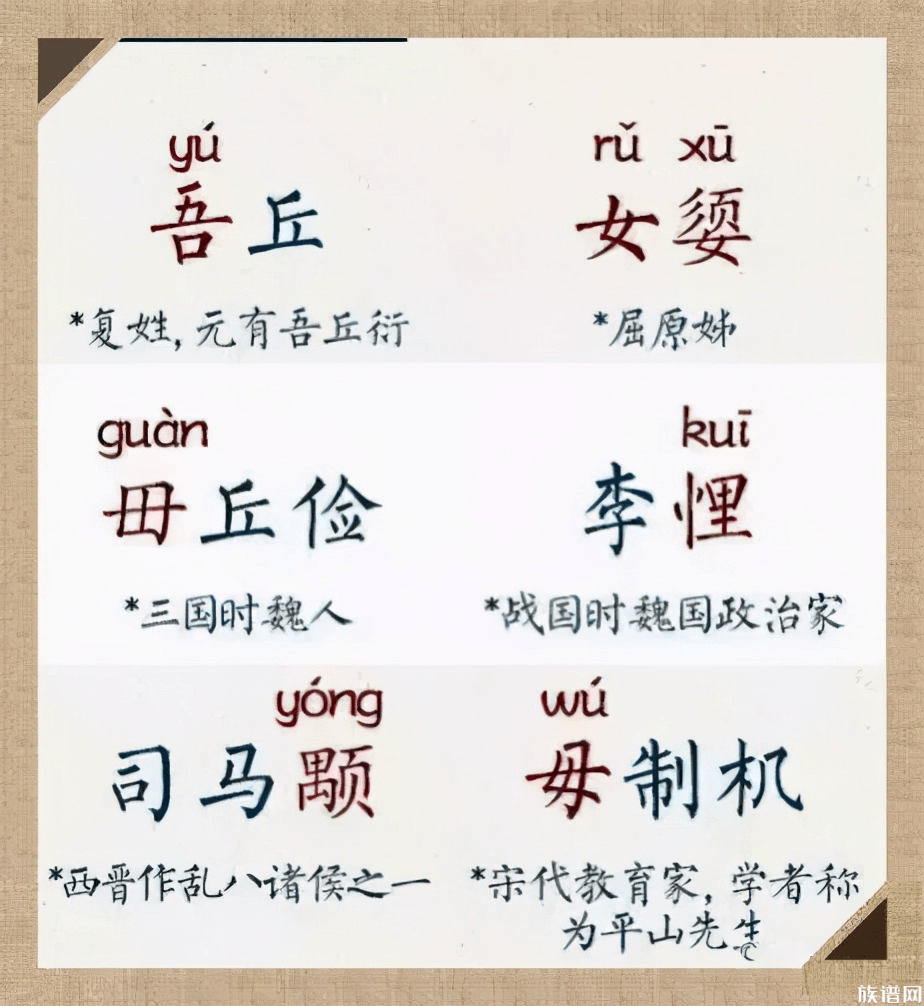 yú
吾丘
*复姓,元有吾丘衍
rǔ xū
女媭
*屈原姊
guàn
毌丘俭
*三国时魏人
kuī
李悝
*战国时魏国政治家
yóng
司马颙
*西晋作乱八诸侯之一
wú
毋制机
*宋代教育家,学者称
为平山先生
族谱网